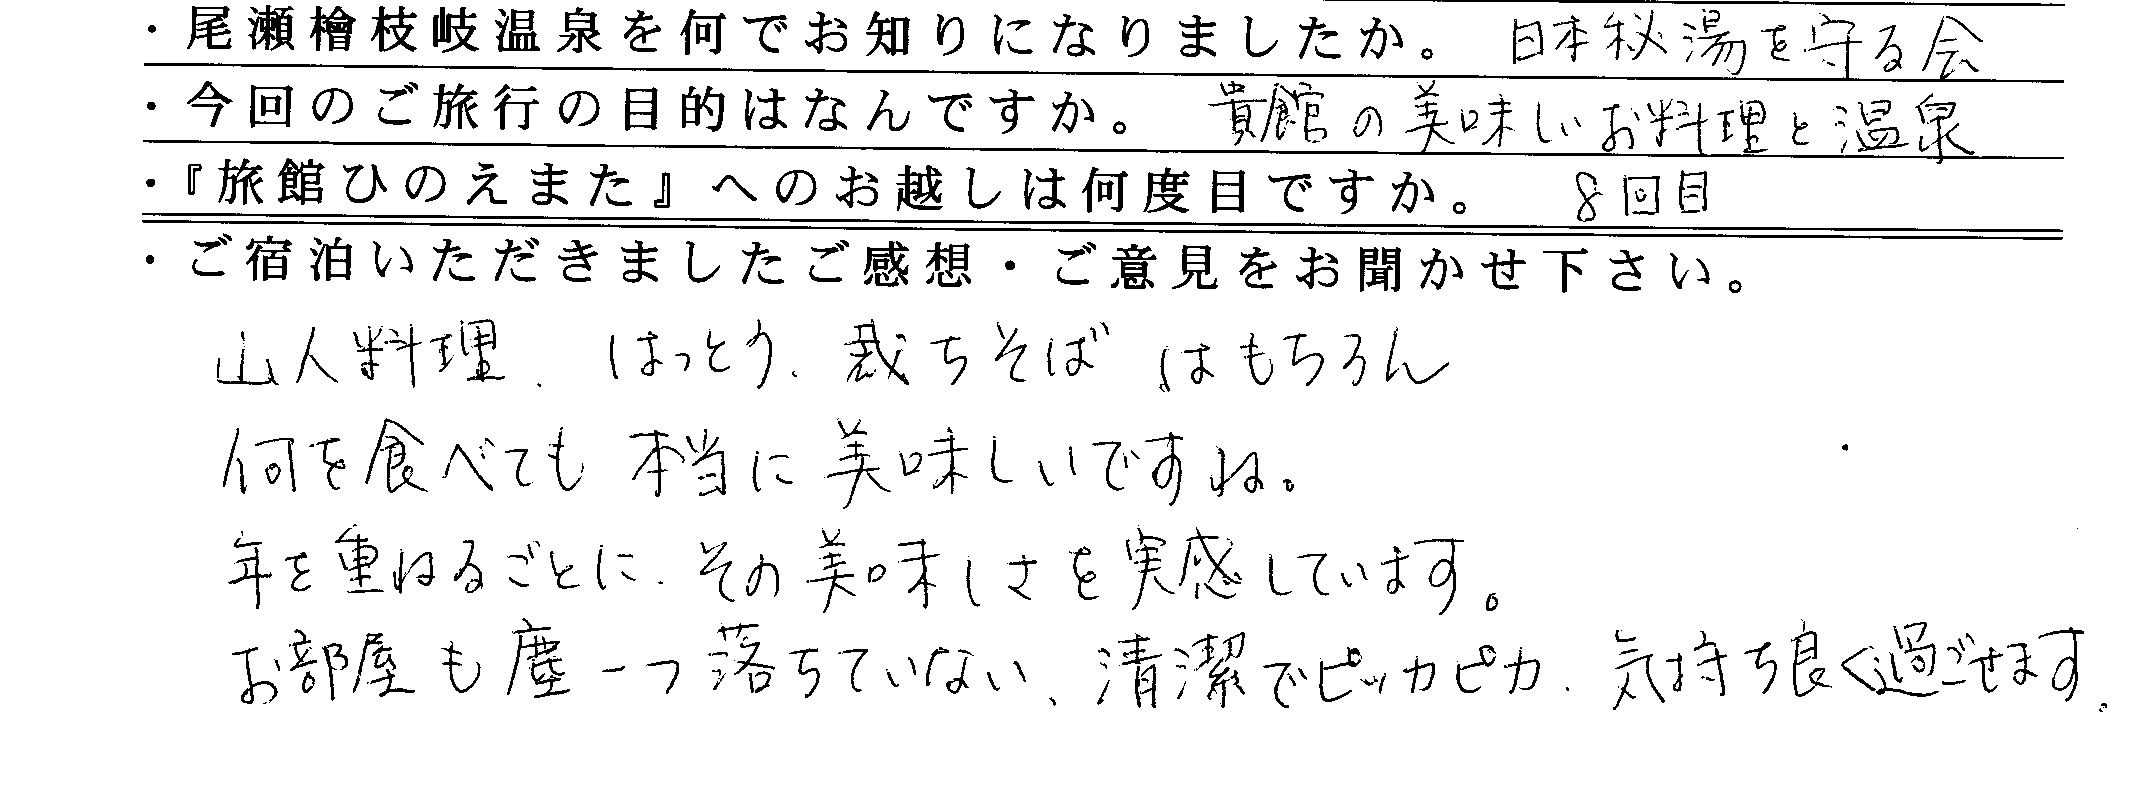 ・尾瀬檜枝岐温泉を何でお知りになりましたか。 日本秘湯を守る会
・今回のご旅行の目的はなんですか。 貴館の美味しいお料理と温泉
・『旅館ひのえまた』へのお越しは何度目ですか。 8回目
・ご宿泊いただきましたご感想・ご意見をお聞かせ下さい。
山人料理、はっとう、裁ちそばはもちろん
何を食べても本当に美味しいですね。
年を重ねるごとに、その美味しさを実感しています。
お部屋も塵一つ落ちていない、清潔でピッカピカ、気持ち良く過ごせます。